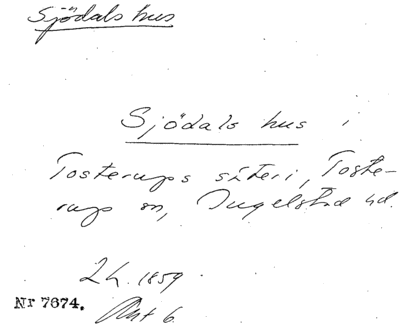 Sjödals hus
Sjödals hus i
Tosterups säteri, Toste-
rups sn, Ingelstad hd.
L h. 1859.
Nr 7674.
Akt 6.